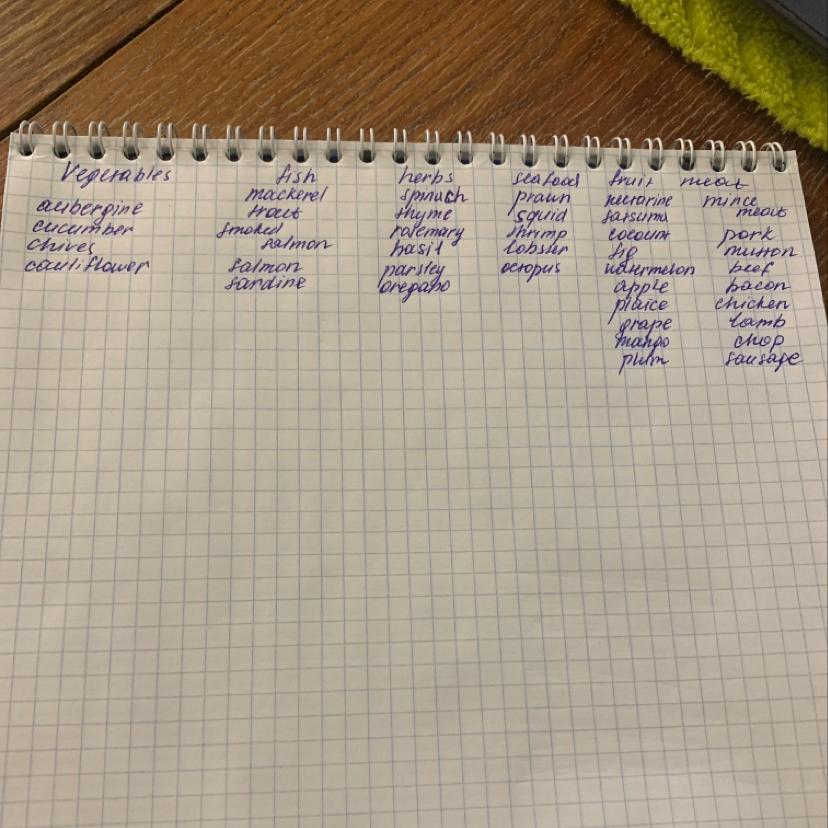 Vegetables fish herbs seafood fruit meat
aubergine
cucumber
chives
cauliflower
mackerel
trout
smoked
salmon
salmon
sardine
spinach
thyme
rosemary
basil
parsley
oregano
prawn
squid
shrimp
lobster
octopus
nectarine
satsuma
fig
watermelon
apple
plaice
grape
mango
plum
mince
meat
pork
mutton
beef
bacon
chicken
lamb
chop
sausage